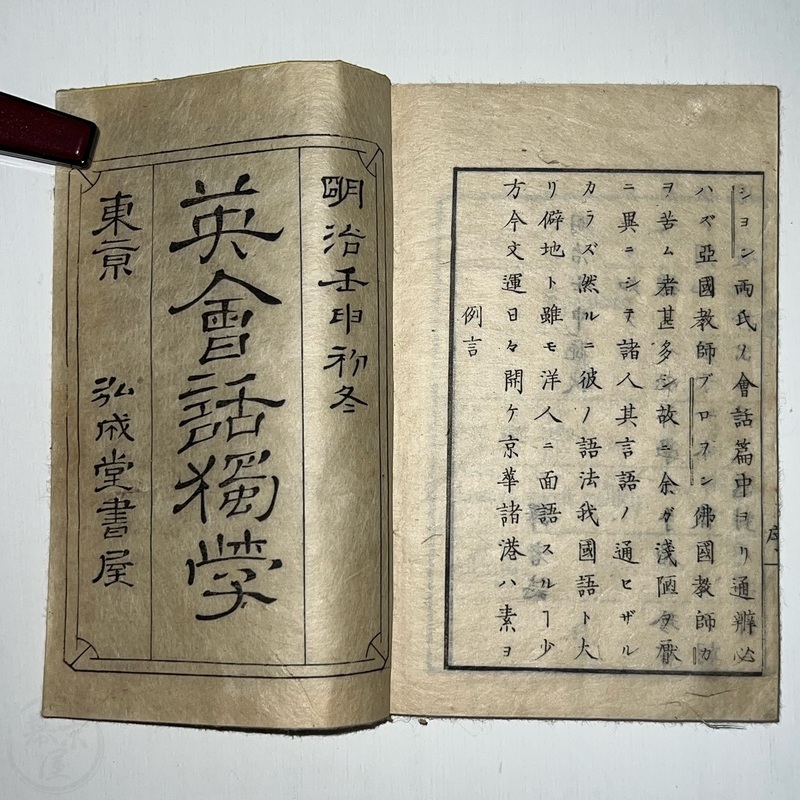 明治壬申初冬
英會話獨學
東京 弘成堂書屋
例言
方今文運日々開ケ京華諸港ハ素ヨ
リ僻地ト雖モ洋人ニ面語スルヿ少
カラズ然ルニ彼ノ語法我國語ト大
ニ異ニシテ諸人其言語ノ通ヒザル
ヲ苦ム者甚多シ故ニ余ガ淺陋ヲ厭
ハズ亞國教師ブロヲン佛國教師カ
ション両氏ノ會話篇中ヨリ通辨必
序